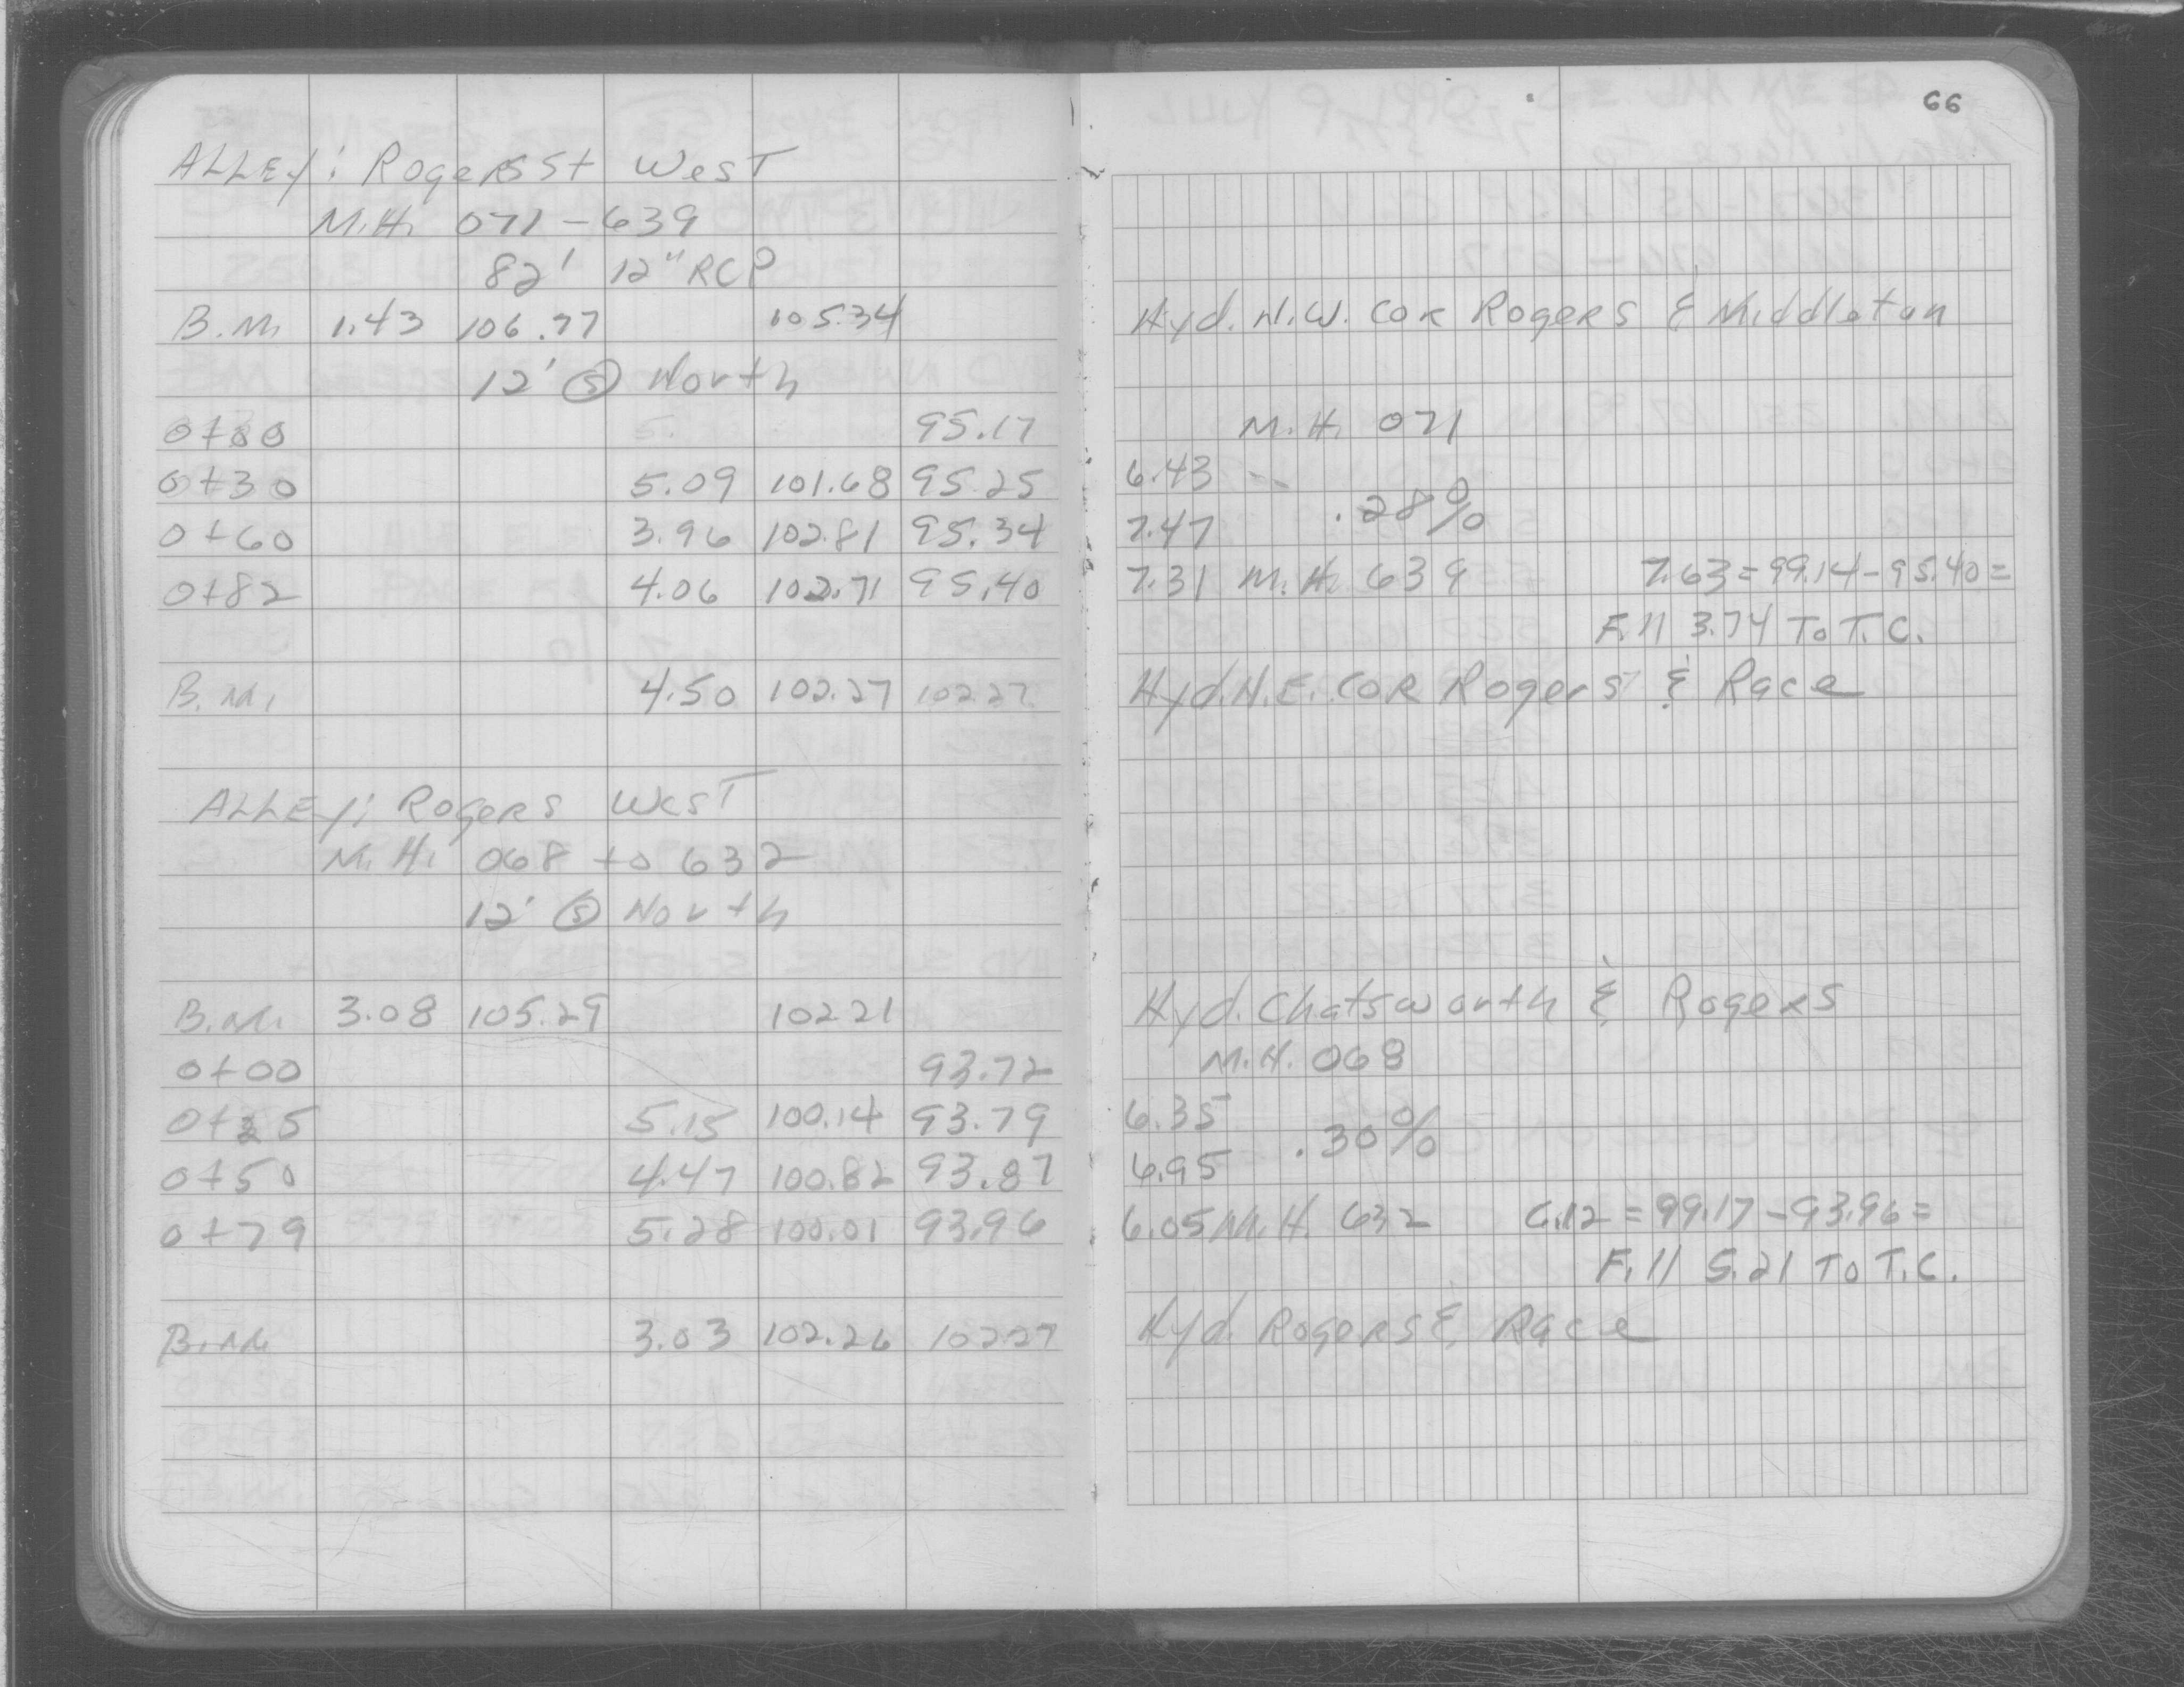 66
ALLEY: Rogers St West
M.H. 071-639
82' 12" RCP
B.M. 1.43 106.77 105.34 Hyd. N.W. COR Rogers & Middleton
12' Ⓢ North
0+00 95.17 M.H. 071
0+30 5.09 101.68 95.25 6.43
.28%
0+60 3.96 102.81 95.34 7.47
0+82 4.06 102.71 95.40 7.31 M.H. 639 7.63=99.14-95.40=
Fill 3.74 To T.C.
B.M. 4.50 102.27 102.27 Hyd. N.E. COR Rogers & Race
ALLEY: Rogers West
M.H. 068 to 632
12' Ⓢ North
B.M. 3.08 105.29 102.21 Hyd. Chatsworth & Rogers
0+00 93.72 M.H. 068
0+25 5.15 100.14 93.79 6.35
.30%
0+50 4.47 100.82 93.87 6.95
0+79 5.28 100.01 93.96 6.05 M.H. 632 6.12=99.17-93.96=
Fill 5.21 To T.C.
B.M. 3.03 102.26 102.27 Hyd. Rogers & Race